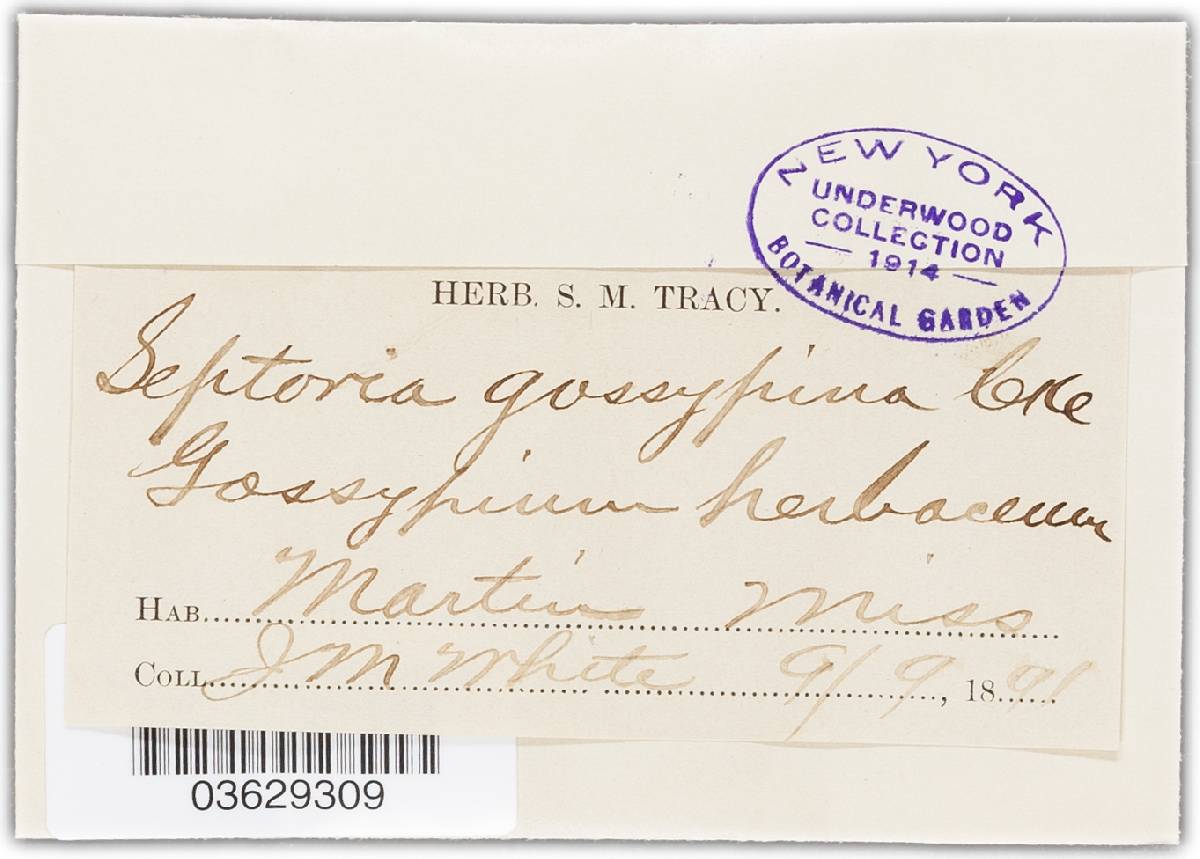 NEW YORK
UNDERWOOD
COLLECTION
— 1914 —
BOTANICAL GARDEN
HERB. S. M. TRACY.
Septoria gossypina Cke
Gossypium herbaceum
HAB. Martin Miss
COLL. J M White 9/9, 1891
03629309